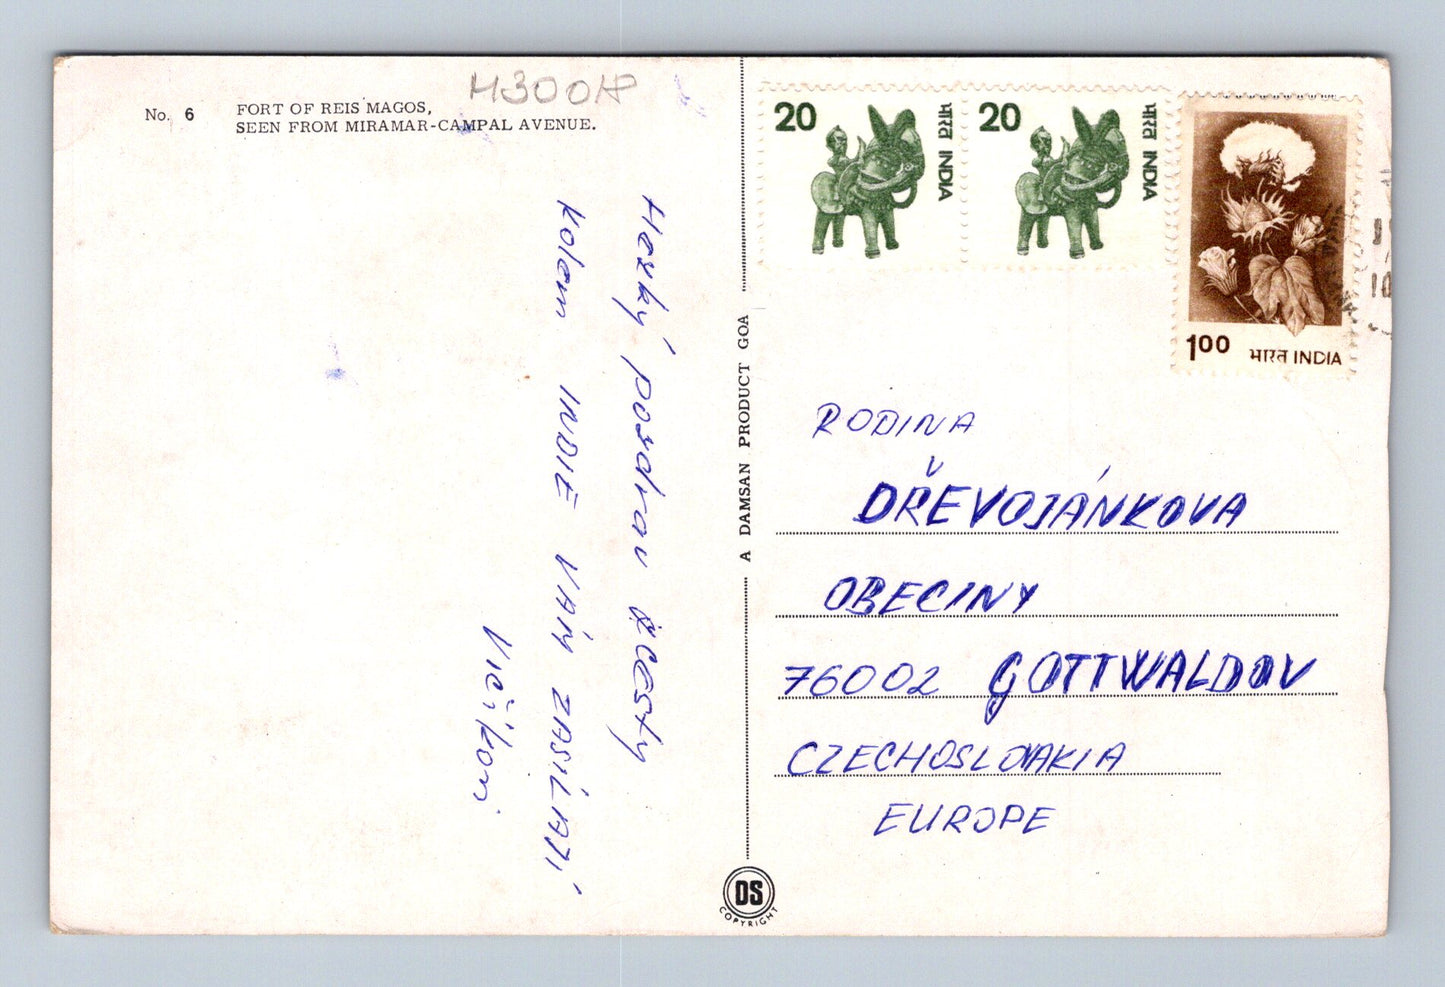 H3001P
No. 6 FORT OF REIS MAGOS,
SEEN FROM MIRAMAR-CAMPAL AVENUE.
Hezký pozdrav z cesty
kolem INDIE VÁM ZASÍLAJÍ
Vičíkovi
A DAMSAN PRODUCT GOA
DS
COPYRIGHT
20 भारत INDIA
20 भारत INDIA
100 भारत INDIA
RODINA
DŘEVOJÁNKOVA
OBECINY
76002 GOTTWALDOV
CZECHOSLOVAKIA
EUROPE